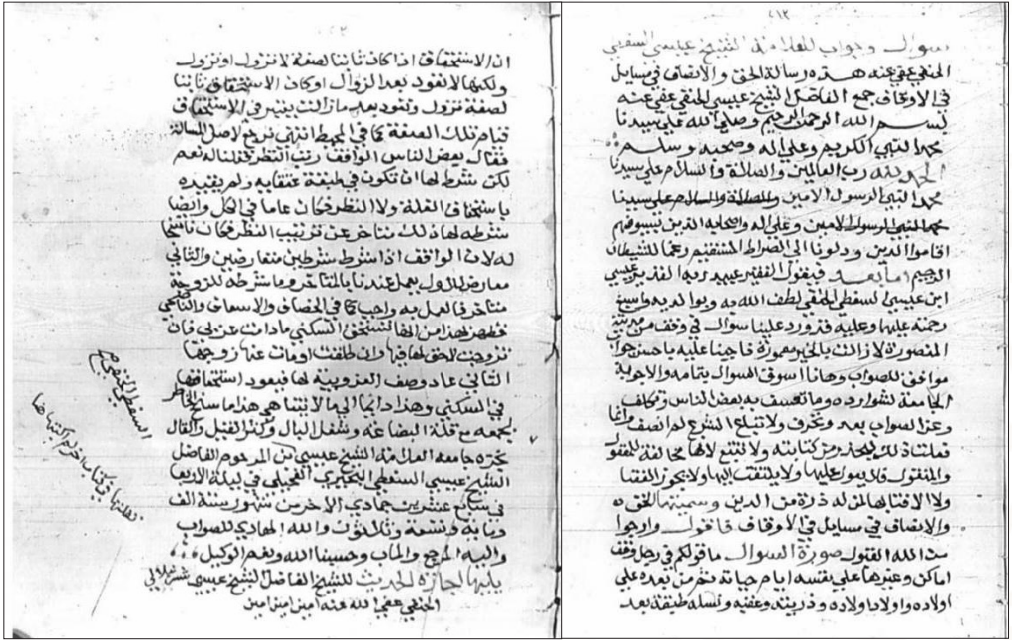 سوال وجواب للعلامة الشيخ عيسى السفطي
الحنفي عفي عنه هذه رسالة الحق والانصاف في مسايل
في الاوقاف جمع الفاضل الشيخ عيسى الحنفي عفي عنه
بسم الله الرحمن الرحيم وصلى الله على سيدنا
محمد النبي الكريم وعلى اله وصحبه وسلم
الحمد لله رب العالمين والصلاة والسلام على سيدنا
محمد النبي الرسول الامين والصلاة والسلام على سيدنا
محمد النبي الرسول الامين وعلى اله واصحابه الذين بسيوفهم
اقاموا الدين ودلونا الى الصراط المستقيم رغما للشيطان
الرجيم اما بعد فيقول الفقير عبيد ربه عيسى
ابن عيسى السفطي الحنفي لطف الله به وبوالديه واسبغ
رحمته عليهما وعليه قد ورد علينا سوال في وقف من مدينة
المنصورة لا زالت بالخير معمورة فاجبنا عليه باحسن جواب
موافق للصواب وها انا اسوق السوال بتمامه والاجوبة
الجامعة لشوارده وما تعسف به بعض الناس وتكلف
وعن الصواب بعد وتحرف ولا تبلغ الشرع لو انصف وانما
فعلت ذلك ليحذر من كتابته ولا تتبع لانها مخالفة للمعقول
والمنقول فلا يعول عليها ولا يلتفت اليها ولا يجوز القضا
ولا الافتا بها لمن له ذرة من الدين وسميتها الحق
والانصاف في مسايل في الاوقاف فاقول وارجوا
من الله القبول صورة السوال ما قولكم في رجل وقف
اماكن وغيرها على نفسه ايام حياته ثم من بعده على
اولاده واولاد اولاده وذريته وعقبه ونسله طبقة بعد
ان الاستحقاق اذا كان ثابتا لصفة لا تزول او تزول
ولكنها لا تعود بعد الزوال او كان الاستحقاق ثابتا
لصفة تزول وتعود بعد ما زالت يعتبر في الاستحقاق
قيام تلك الصفة كما في المحيط انتهى نرجع لاصل المسالة
فقال بعض الناس الواقف رتب النظر فقلنا له نعم
لكن شرط لها ان تكون في طبقة ولم يقيده
باستحقاق الغلة ولا النظر فكان عاما في الكل وايضا
شرطه لها ذلك متاخر عن ترتيب النظر فكان ناسخا
له لان الواقف اذا شرط شرطين متعارضين والثاني
معارض للاول يعمل عندنا بالمتاخر وما شرطه للزوجة
متاخر فالعمل به واجب كما في الخصاف والاسعاف
فظهر بهذا من انها تستحق السكنى ما دامت عزبى فان
تزوجت لاحق لها فيها وان طلقت او مات عنها زوجها
الثاني عاد وصف العزوبية لها فيعود استحقاقها
في السكنى وهذا دايما الى ما لا يتناهى هذا ما سنح الخاطر
بجمعه مع قلة البضاعة وشغل البال وكثر القيل والقال
حرره جامعه العلامة الشيخ عيسى ابن المرحوم الفاضل
الشيخ عيسى السفطي البحيري في ليلة الاربعا
في سابع عشرين جمادي الاخر من شهور سنة الف
وماية وثلاثون والله الهادي للصواب
واليه المرجع والماب وحسبنا الله ونعم الوكيل
يليها اجازة الحديث للشيخ الفاضل الشيخ عيسى
الحنفي عفى الله عنه امين امين امين
السفطي الحنفي